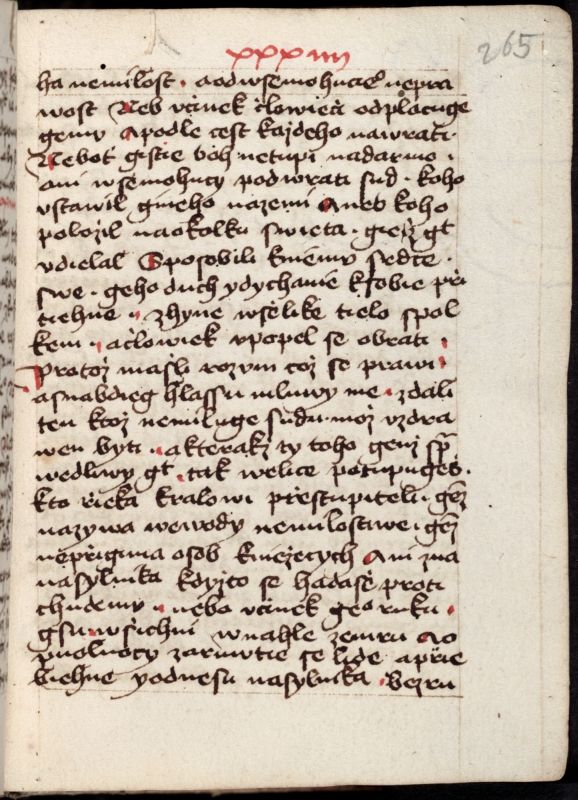 xxxiiii
265
ha nemilost · a od wsemohucieo neprа
wost Neb vcinek clowieci odplacuge
gemu A podle cest kazdeho nawrati ·
Nebot gistie boh netupi nadarmo ·
ani wsemohucy podwrati sud · koho
vstawil gineho nazemi A neb koho
polozil naokolku swieta · gienz gt
vdielal Sposobili kniemu sedce
swe · geho duch y dychanie k sobie pri
tiehne · zhyne wselike tielo spol
kem · a clowiek vpopel se obrati ·
Protoz masli rozum coz se prawi ·
a snabdieg hlassu mluwy me · zdali
ten ktoz nemiluge sudu · moz vzdra
wen byti · a kterakz ty toho genz
wedliwy gt · tak welice potupuges ·
kto rieka kralowi prestupitelu ·
nazywa wewody nemilostiwe ·
neprigima osob kniezecych Ani zna
nasylnika kdyzto se hadase proti
chudemu · nebo vcinek geo ruku ·
gsu wsichni w nahle zemru A o
puolnocy zarmutie se lide a prie
biehne y odnesu nasylnika · bezru